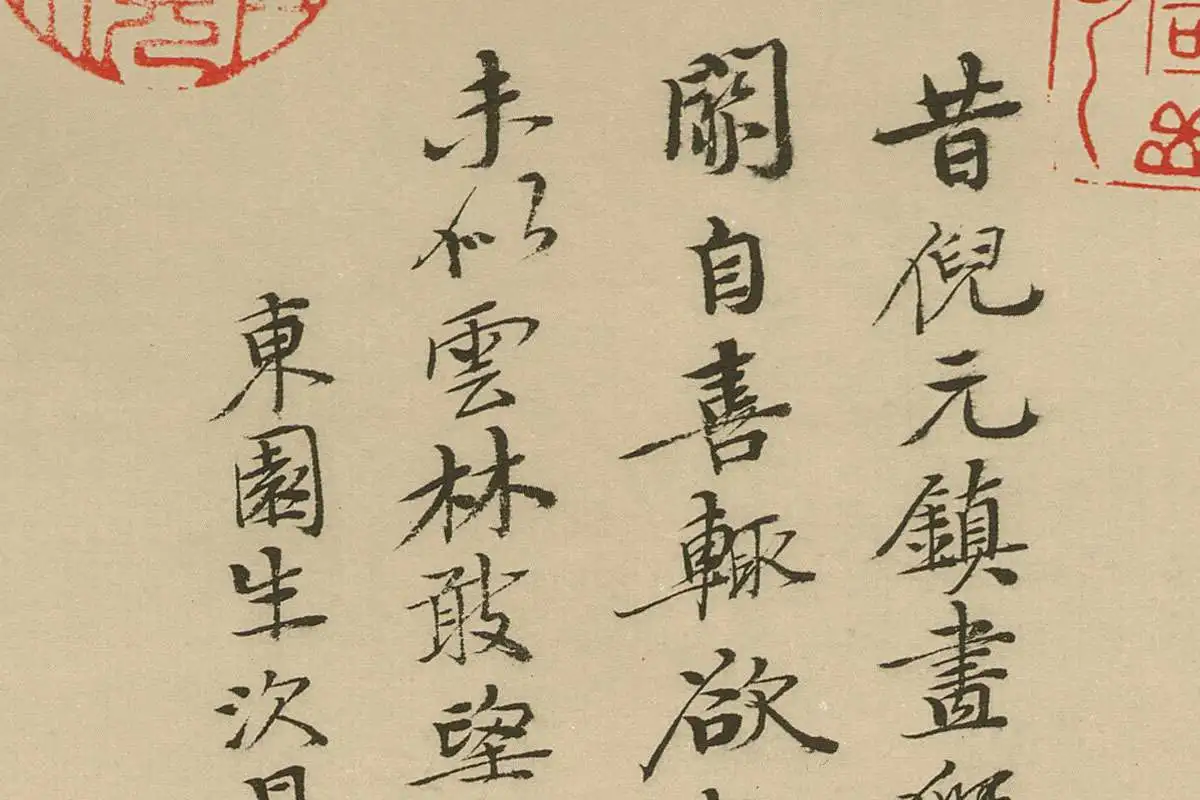 昔倪元鎮畫獅
關自喜輒欲
未似雲林敢望
東園生次